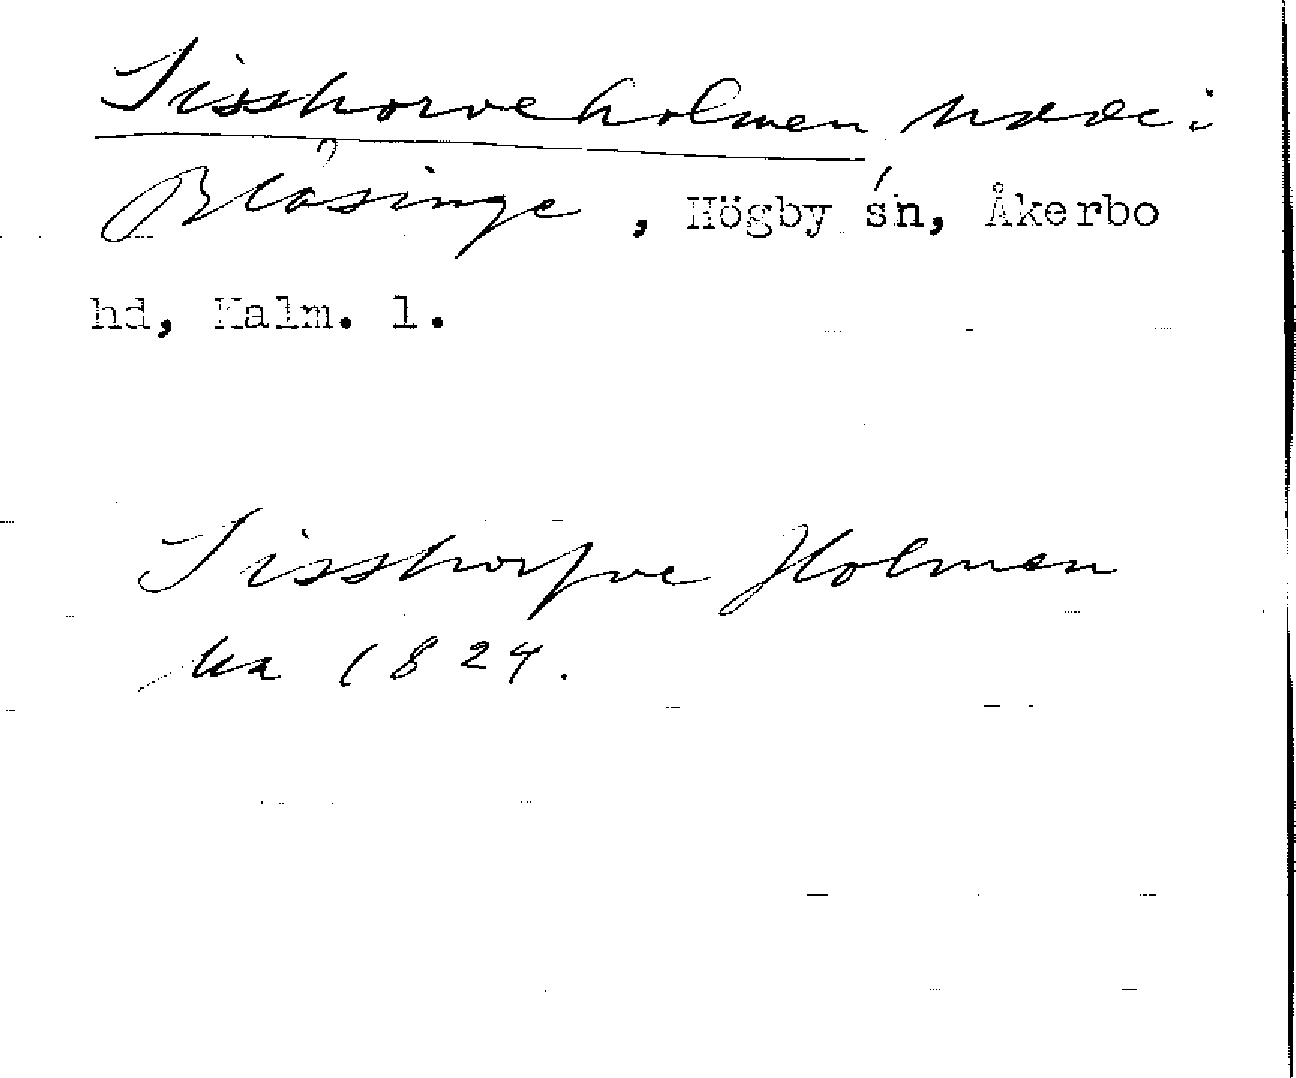 Tisshorveholmen
Blåsinge, Högby sn, Åkerbo
hd, Kalm. l.
Tisshorfve Holmen
ka 1824.